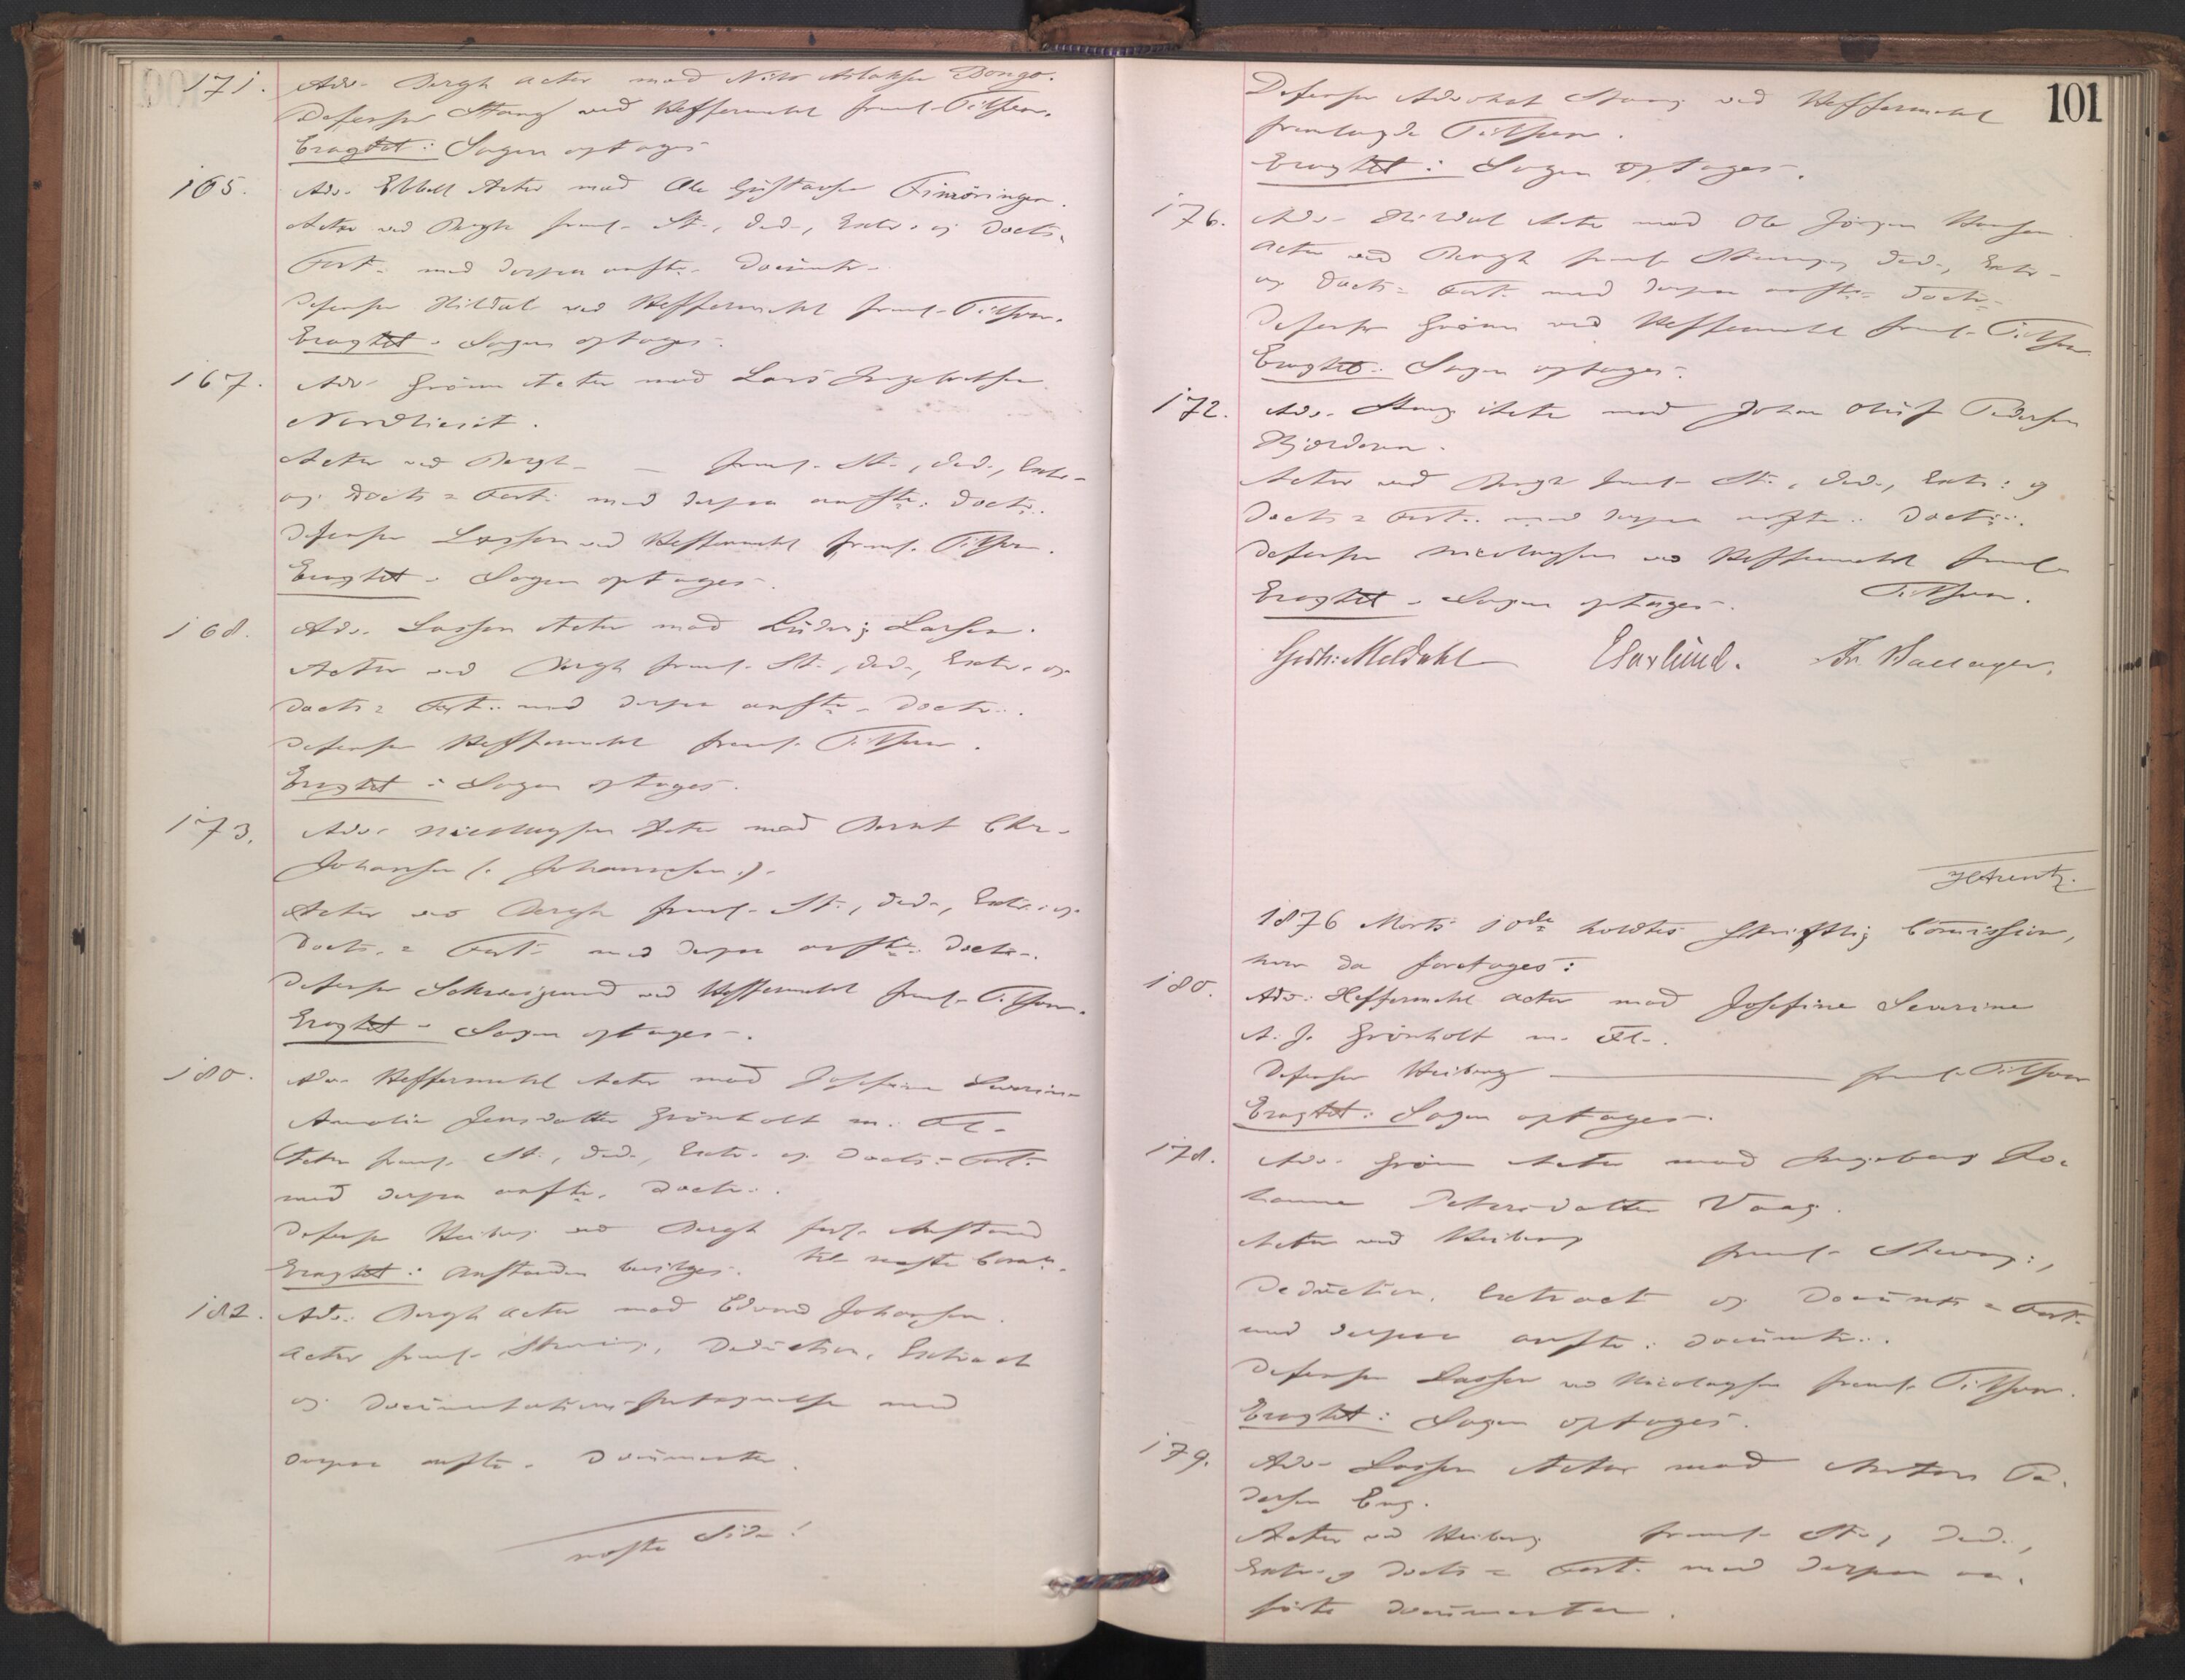 171. Adv. Bergh Actor mod Nils Aslaksen Dongo.
Defensor Stang ved Heffermehl freml. Tilsvar.
Eragtet: Sagen optages
165. Adv. Actor mod Ole Gustavsen
Actor ved Bergh freml. St., Ded., Extr. og Docts.
Fort. med derpaa anfte. Documtr.
Defensor Hildal ved Heffermehl freml. Tilsvar.
Eragtet. Sagen optages.
167. Adv. Grönn Actor mod Lars
Nordlieeit.
Actor ved Bergh — freml. St., Ded., Extr.
og Docts = Fort. med derpaa anfte. Doctr.
Defensor Lassen ved Heffermehl freml. Tilsvar.
Eragtet. Sagen optages.
168. Adv. Lassen Actor mod Ludvig Larsen.
Actor ved Bergh freml. St., Ded., Extr. og
Docts = Fort. med derpaa anfte. Doctr.
Defensor Heffermehl freml. Tilsvar.
Eragtet: Sagen optages.
173. Adv. Nicolaysen Actor mod Bernt Chr.
Johansen (. Johannesen .).
Actor ved Bergh freml. St., Ded., Extr. og
Docts. = Fort. med derpaa anfte. Doctr.
Defensor Schweigaard ved Heffermehl freml. Tilsvar.
Eragtet. Sagen optages.
180. Adv. Heffermehl Actor mod Josefine Severine
Amalie Jensdatter Grönholt m. Fl.
Actor freml. St., Ded., Extr. og Docts = Fort.
med derpaa anfte. Doctr.
Defensor Heiberg ved Bergh forl. Anstand
Eragtet: Anstanden bevilges. til næste Comm.
182. Adv. Bergh Actor mod Edvard Johansen.
Actor freml. Stevning, Deduction, Extract
og Documentationsfortegnelse med
derpaa anfte. Documenter.
næste Side!
101
Defensor Advokat Stang ved Heffermehl
fremlagde Tilsvar.
Eragtet: Sagen optages.
176. Adv. Hildal Actor mod Ole Jörgen Hansen.
Actor ved Bergh freml. Stevning, Ded., Extr.
og Docts = Fort. med derpaa anfte. Doctr.
Defensor Grönn ved Heffermehl freml. Tilsvar
Eragtet. Sagen optages.
172. Adv. Stang Actor mod Johan Oluf Pedersen
Actor ved Bergh freml. St., Ded., Extr: og
Docts = Fort. med derpaa anfte. Doctr.
Defensor Nicolaysen ved Heffermehl freml.
Tilsvar.
Eragtet. Sagen optages.
Gerh: Meldahl E Oxlund. Fr. Hallager.
H Arentz.
1876 Marts 10de holdtes skriftlig Commission,
hvor da foretoges:
180. Adv: Heffermehl Actor mod Josefine Severine
A. J. Grönholt m. Fl.
Defensor Heiberg — freml. Tilsvar
Eragtet: Sagen optages.
178. Adv. Grönn Actor mod Ingeborg Jo-
hanne Petersdatter Vaag.
Actor ved Heiberg freml. Stevng:,
Deduction, Extract og Documts = Fort.
med derpaa anfte: Documtr.
Defensor Lassen ved Nicolaysen freml. Tilsvar.
Eragtet: Sagen optages.
179. Adv. Lassen Actor mod Anton Pe-
dersen Eng.
Actor ved Heiberg freml. St., Ded.,
Extr. og Docts = Fort. med derpaa an-
förte Documenter.